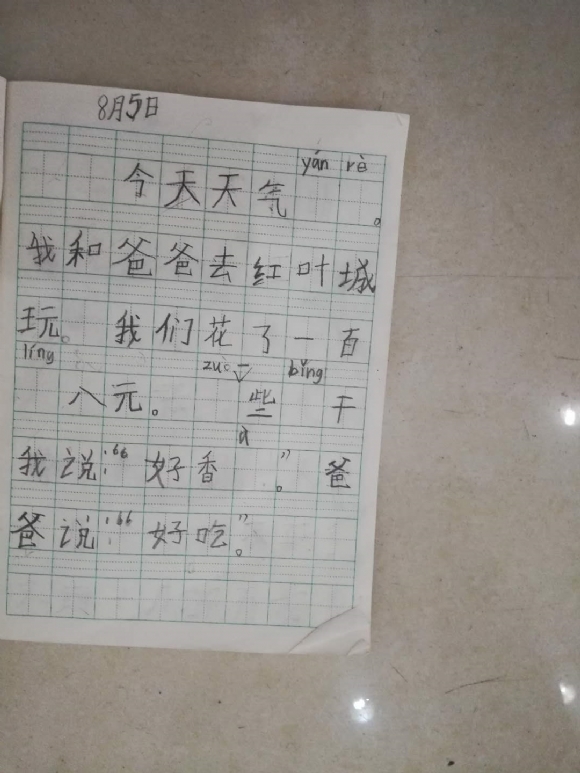 8月5日
今天天气yán rè。
我和爸爸去红叶城
玩。我们花了一百
líng八元。zuò一些bǐng干
我说：“好香à。”爸
爸说：“好吃”。